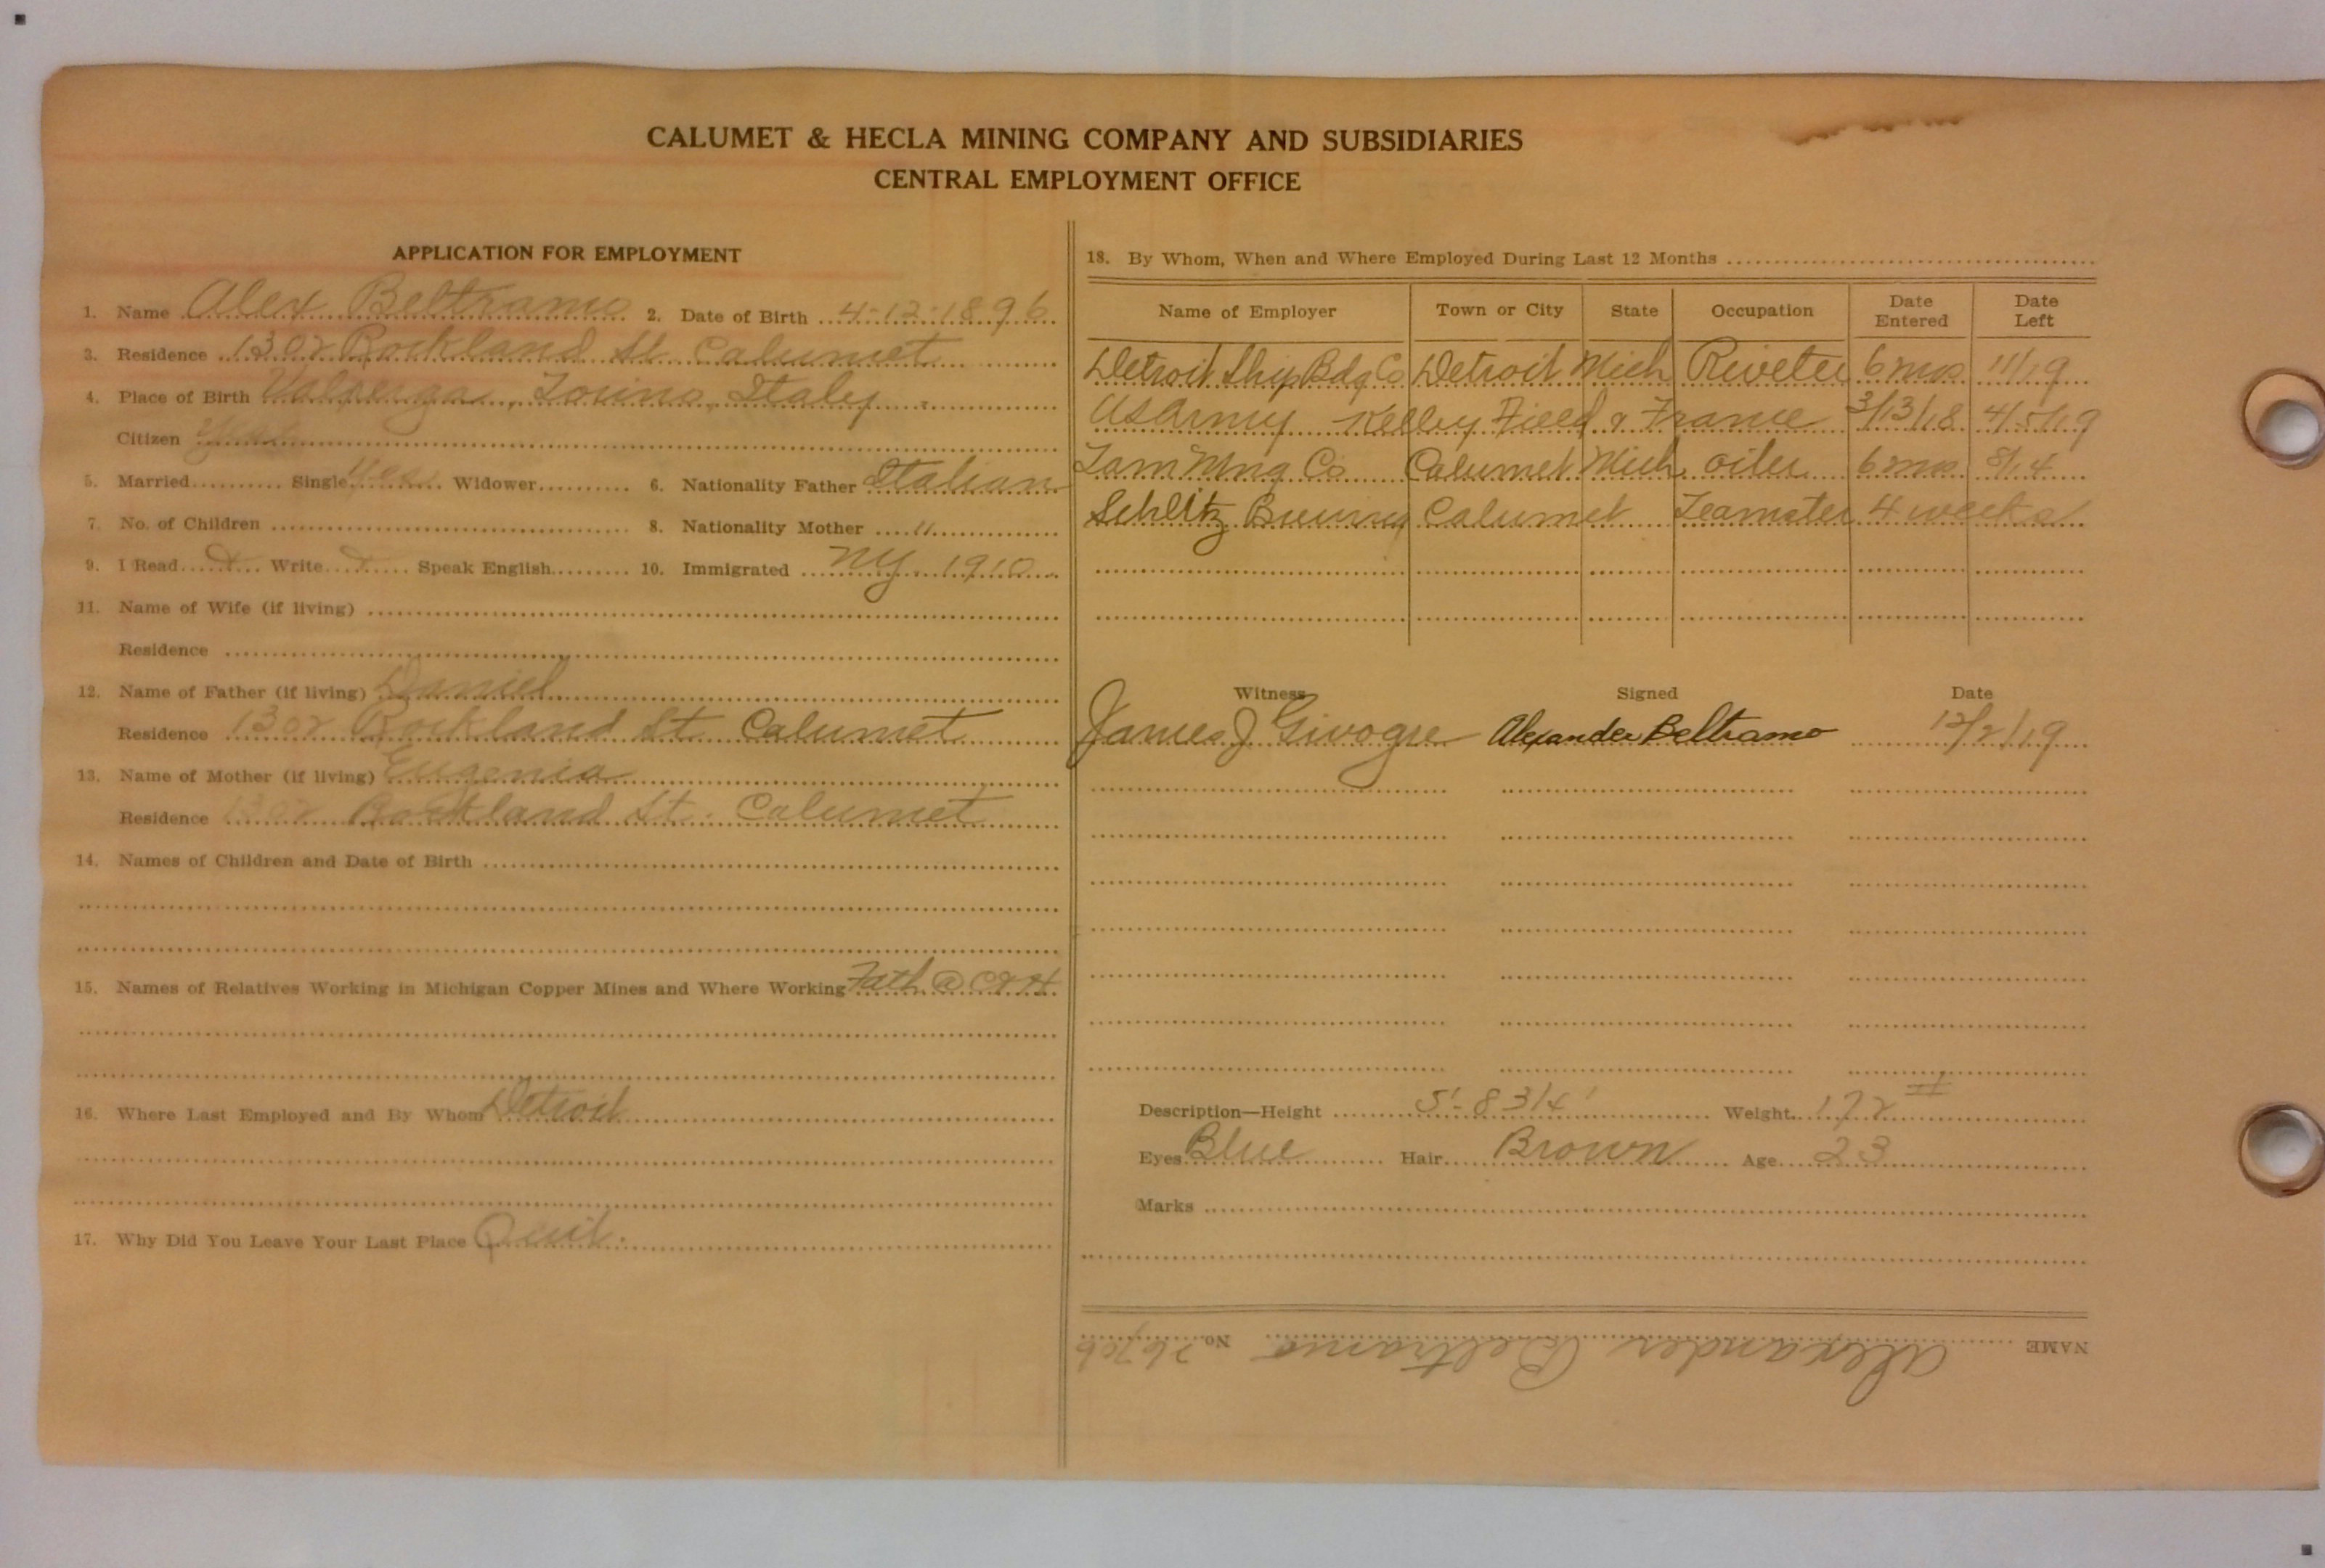 CALUMET & HECLA MINING COMPANY AND SUBSIDIARIES
CENTRAL EMPLOYMENT OFFICE
APPLICATION FOR EMPLOYMENT
1. Name Alex Beltramo 2. Date of Birth 4-12-1896
3. Residence 1302 Rockland St. Calumet
4. Place of Birth Valperga, Torino, Italy
Citizen Yes
5. Married Single Yes Widower 6. Nationality Father Italian
7. No. of Children 8. Nationality Mother "
9. I Read x Write x Speak English 10. Immigrated NY. 1910
11. Name of Wife (if living)
Residence
12. Name of Father (if living) Daniel
Residence 1302 Rockland St. Calumet
13. Name of Mother (if living) Eugenia
Residence 1302 Rockland St. Calumet
14. Names of Children and Date of Birth
15. Names of Relatives Working in Michigan Copper Mines and Where Working Fath @ C&H
16. Where Last Employed and By Whom Detroit
17. Why Did You Leave Your Last Place Quit.
18. By Whom, When and Where Employed During Last 12 Months
Name of Employer Town or City State Occupation Date Entered Date Left
Detroit Ship Bdg Co Detroit Mich Riveter 6 mos 11/19
US Army Kelley Field & France 3/13/18 4/5/19
Tam Mng Co Calumet Mich oiler 6 mos. 8/14
Schlitz Brewing Calumet Teamster 4 weeks
Witness Signed Date
James J Givogre Alexander Beltramo 12/2/19
Description—Height 5'-8 3/4' Weight 172 #
Eyes Blue Hair Brown Age 23
Marks
NAME Alexander Beltramo No. 26706